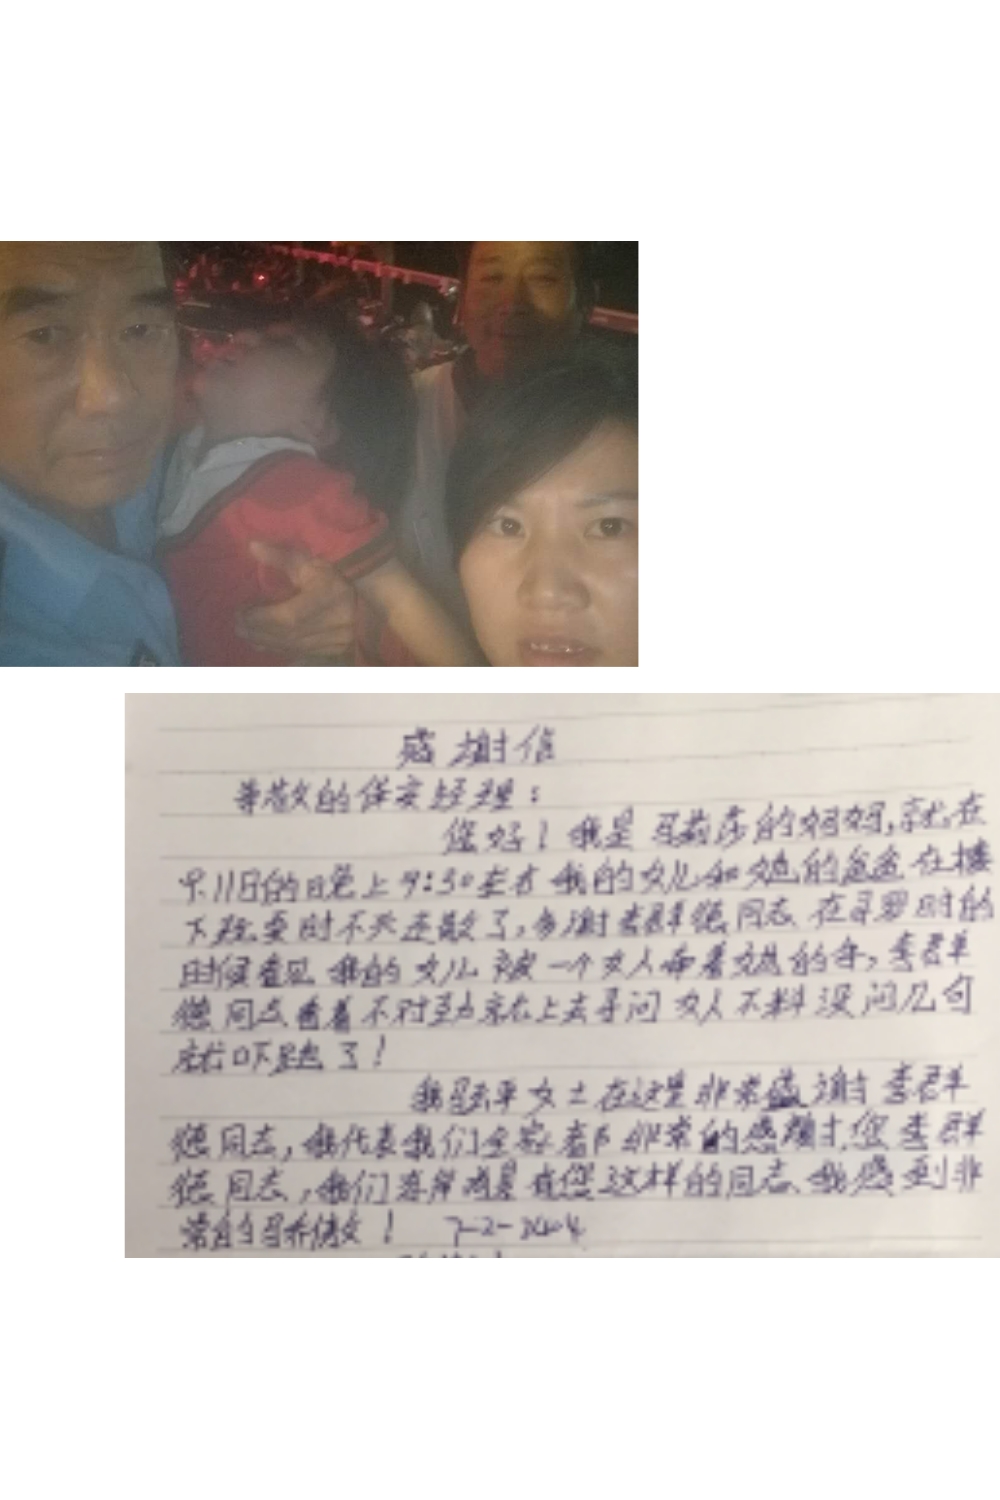 感谢信
尊敬的保安经理：
您好！我是 莉莎的妈妈,就在
9.11日的晚上9:30左右我的女儿和她的爸爸在楼
下玩耍时不 走散了,多谢李群德同志在寻 时的
时候看见我的女儿被一个女人牵着她的手,李群
德同志看着不对劲就上去寻问女人不料没问几句
就吓跑了！
我 平女士在这里非常感谢李群
德同志,我代表我们全家都非常的感谢您李群
德同志,我们 有您这样的同志我感到非
常的 骄傲！ 7-2-